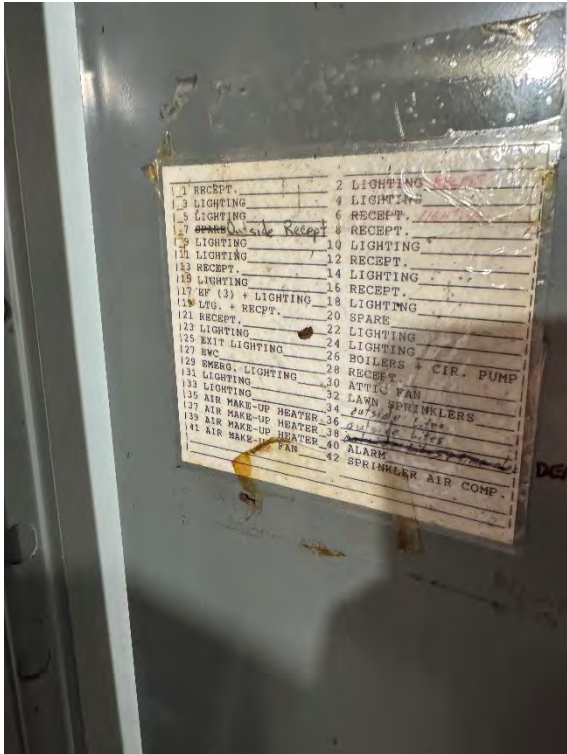 1 RECEPT.
3 LIGHTING
5 LIGHTING
7 SPARE Outside Recept
9 LIGHTING
11 LIGHTING
13 RECEPT.
15 LIGHTING
17 EF (3) + LIGHTING
19 LTG. + RECPT.
21 RECEPT.
23 LIGHTING
25 EXIT LIGHTING
27 EWC
29 EMERG. LIGHTING
31 LIGHTING
33 LIGHTING
35 AIR MAKE-UP HEATER
37 AIR MAKE-UP HEATER
39 AIR MAKE-UP HEATER
41 AIR MAKE-UP FAN
2 LIGHTING
4 LIGHTING
6 RECEPT.
8 RECEPT.
10 LIGHTING
12 RECEPT.
14 LIGHTING
16 RECEPT.
18 LIGHTING
20 SPARE
22 LIGHTING
24 LIGHTING
26 BOILERS + CIR. PUMP
28 RECEPT.
30 ATTIC FAN
32 LAWN SPRINKLERS
34 outside lites
36 outside lites
38
40 ALARM
42 SPRINKLER AIR COMP.